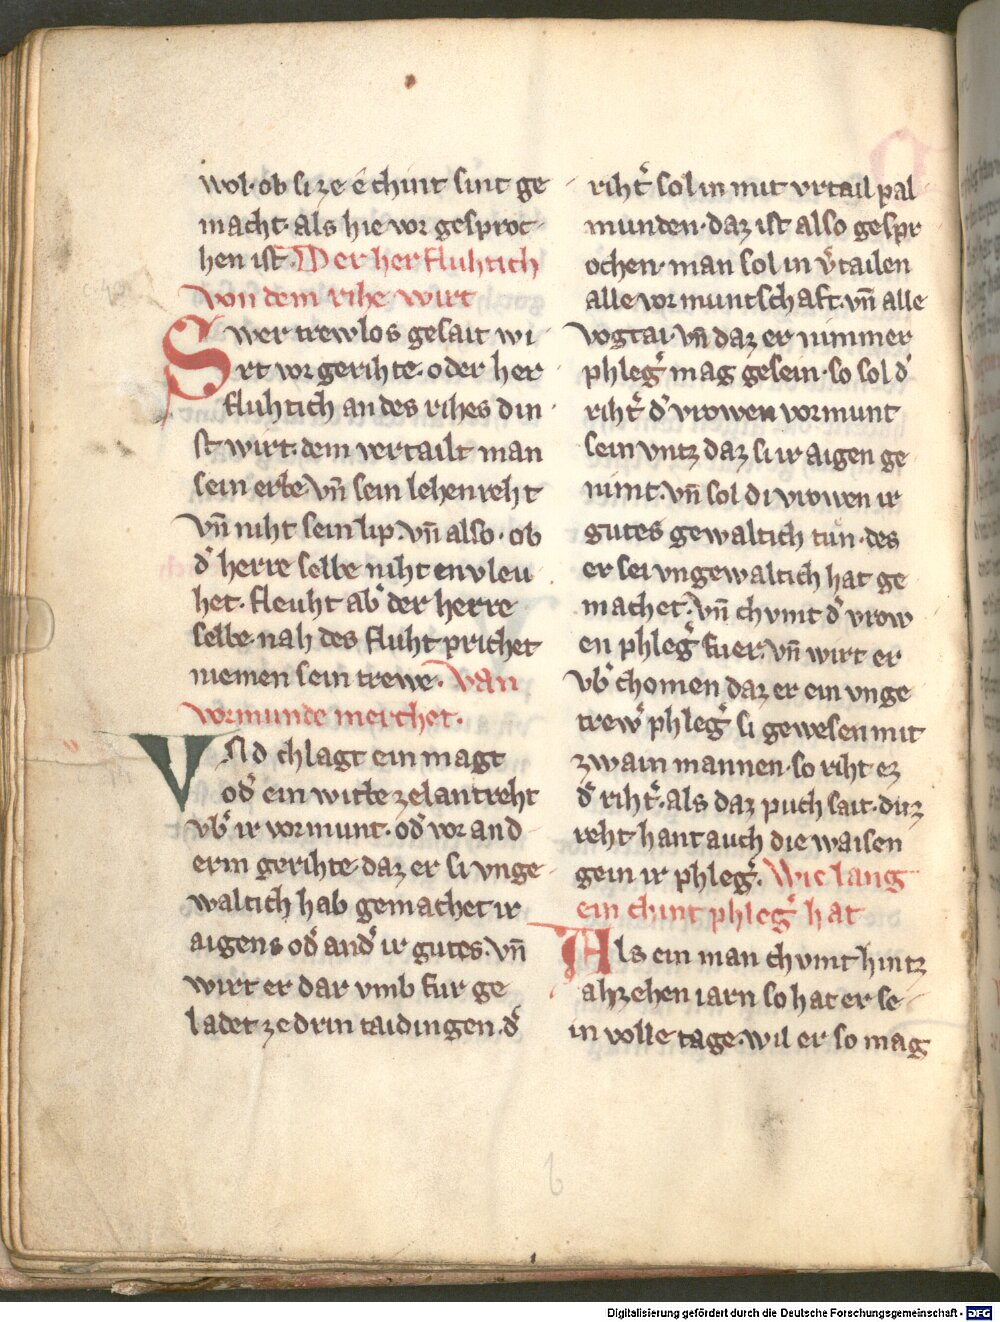 wol· ob si ze ê chint sint ge
macht· als hie vor gesproc
hen ist· Der her fluhtich
von dem rihe wirt
Swer trewlos gesait wi
rt vor gerihte· oder her
fluhtich an des rihes din
st wirt· dem vertailt man
sein erbe· vn̄ sein lehenreht
vn̄ niht sein lip· vn̄ also· ob
d̕ herre selbe niht envleu
het· fleuht ab̕ der herre
selbe· nah des fluht prichet
niemen sein trewe· Van
vormunde merchet·
VNd chlagt ein magt
od̕ ein witbe ze lantreht
vb̕ ir vormunt· od̕ vor and
erm gerihte· daz er si vnge
waltich hab gemachet ir
aigens od̕ and̕ ir gutes· vn̄
wirt er dar vmb fur ge
ladet ze drin taidingen· d̕
riht̕ sol in mit vrtail pal
munden· daz ist also gespr
ochen· man sol in v̕tailen
alle vormuntschaft· vn̄ alle
vogtai· vn̄ daz er nimmer
phleg̕ mag gesein· so sol d̕
riht̕ d̕ vrowen vormunt
sein vntz daz si ir aigen ge
nimt· vn̄ sol di vrowen ir
gutes gewaltich tuͦn· des
er sei vngewaltich hat ge
machet· vn̄ chvmt d̕ vrow
en phleg̕ fuer· vn̄ wirt er
vb̕chomen daz er ein vnge
trew̕ phleg̕ si gewesen mit
zwain mannen· so riht ez
d̕ riht̕· als daz puch sait· ditz
reht· hant auch die waisen
gein ir phleg̕· Wie lang
ein chint phleg̕ hat
Als ein man chvmt hintz
ahzehen iarn so hat er se
in volle tage· wil er so mag
Digitalisierung gefördert durch die Deutsche Forschungsgemeinschaft - DFG